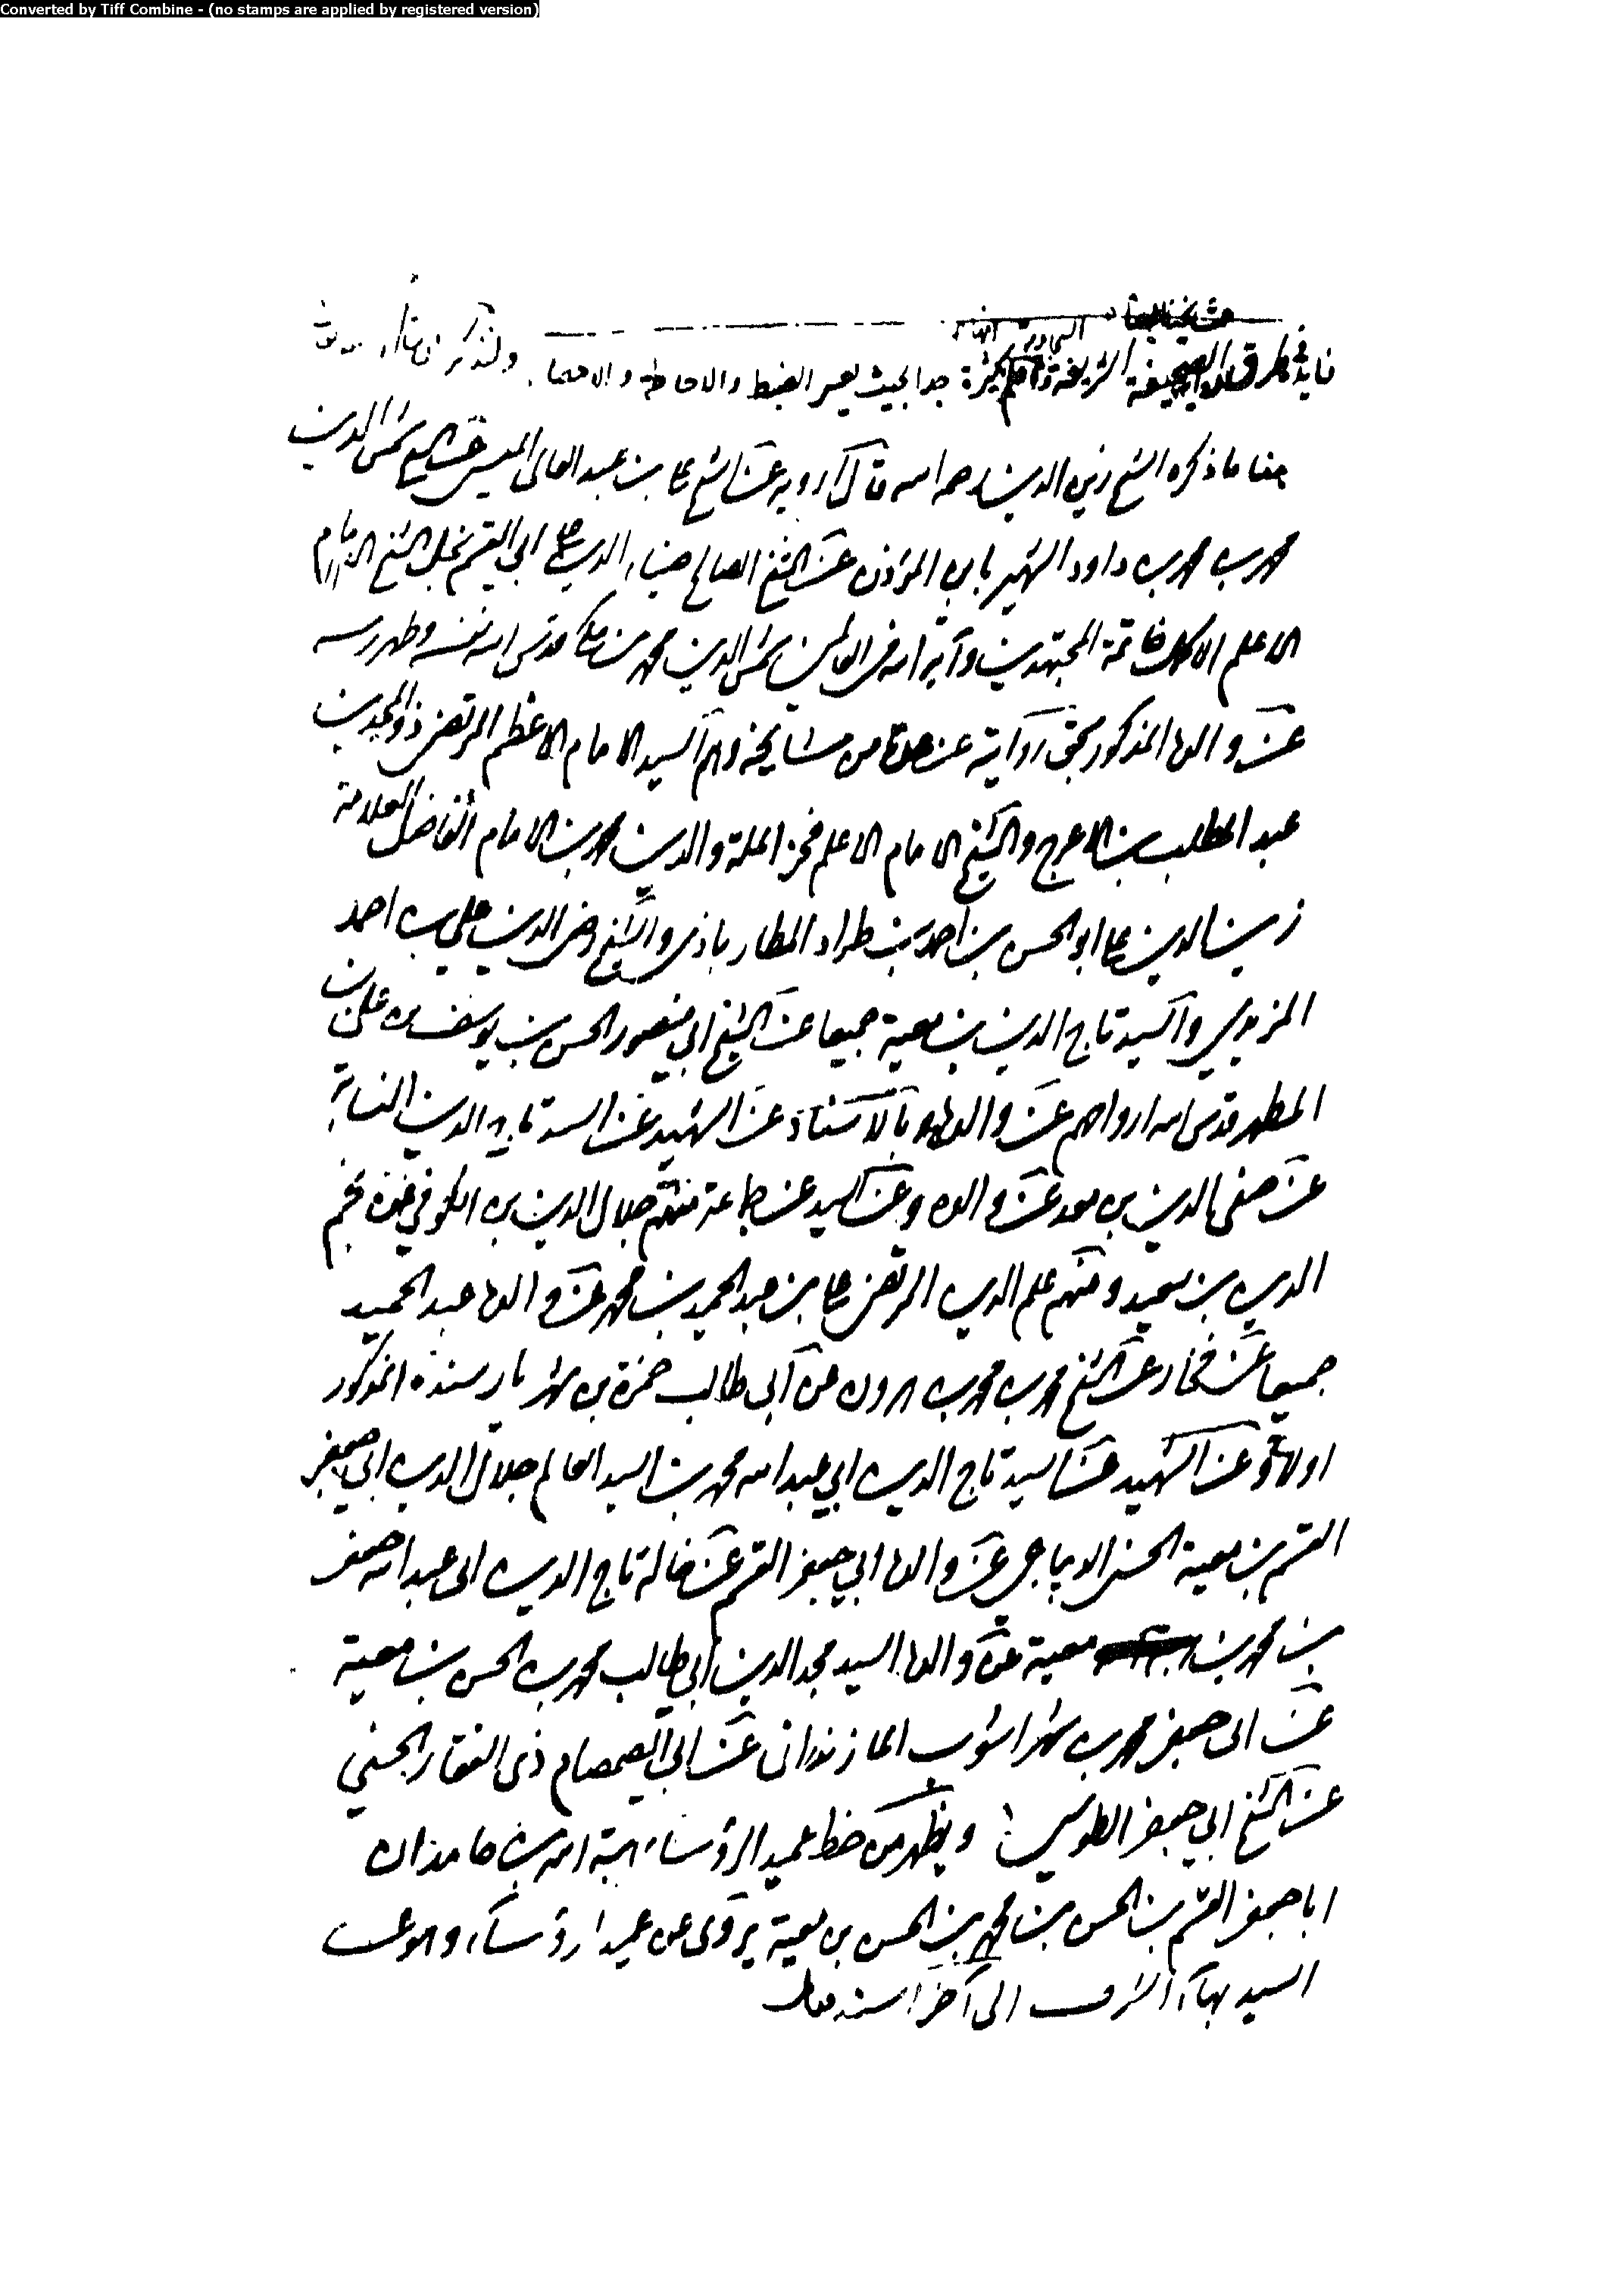 Converted by Tiff Combine - (no stamps are applied by registered version)
طرق الصحيفة الشريفة كثيرة جدا بحيث يعسر الضبط والاحاطة والاحصاء ولنذكر
منها ما ذكره الشيخ زين الدين رحمه الله قال ارويه عن الشيخ علي بن عبد العالي الميسي عن الشيخ شمس الدين
محمد بن محمد بن داود الشهير بابن المؤذن عن الشيخ الصالح ضياء الدين علي ابي القسم نجل الشيخ الامام
الاعلم الاكمل خاتمة المجتهدين وآية الله في العالمين شمس الدين محمد بن مكي قدس الله نفسه وطهر رمسه
عن والده المذكور بحق روايته عن من مشايخه وهم السيد الامام الاعظم المرتضى ذو المجدين
عبد المطلب بن الاعرج والشيخ الامام الاعلم فخر الملة والدين محمد بن الامام الفاضل العلامة
زين الدين علي ابو الحسن بن احمد بن طراد المطارباذي والشيخ رضي الدين علي بن احمد
المزيدي والسيد تاج الدين بن معية جميعا عن الشيخ ابي منصور الحسن بن يوسف بن علي بن
المطهر قدس الله ارواحهم عن والده وبالاسناد عن الشهيد عن السيد تاج الدين النسابة
عن صفي الدين بن معد عن والده وعن السيد عن جماعة منهم جلال الدين بن الكوفي عن نجم
الدين بن سعيد ومنهم علم الدين المرتضى علي بن عبد الحميد بن محمد عن والده عبد الحميد
جميعا عن فخار عن الشيخ محمد بن محمد بن هرون عن ابي طالب حمزة بن شهريار بسنده المذكور
اولا وعن الشهيد عن السيد تاج الدين ابي عبد الله محمد بن السيد العالم جلال الدين ابي جعفر
القسم بن معية الحسني الديباجي عن والده ابي جعفر القسم عن خاله تاج الدين ابي عبد الله جعفر
بن محمد بن معية عن والده السيد مجد الدين ابي طالب محمد بن الحسن بن معية
عن ابي جعفر محمد بن شهراشوب المازندراني عن ابي الصمصام ذي الفقار الحسني
عن الشيخ ابي جعفر الطوسي ويظهر من خط عميد الرؤساء هبة الله بن حامد ان
ابا جعفر القسم بن الحسن بن محمد بن الحسن بن معية يروي عن عميد الرؤساء وهو عن
السيد بهاء الشرف الى آخر السند